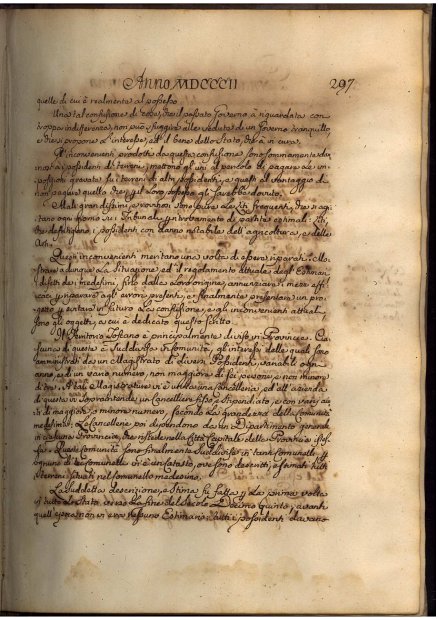 Anno MDCCCII 297
quelle di cui è realmente al possesso.
Una tal confusione di cose, che il passato Governo à riguardata con
troppa indifferenza, non può sfuggire alle vedute di un Governo tranquillo
e che si propone l'interesse, ed il bene dello Stato, che à in cura.
Gl'inconvenienti prodotti da questa confusione sono sommamente dan
nosi ai possidenti di terreni, mettono gl'uni il pericolo di pagare le im
posizioni gravate su i terreni di altri possidenti, e questi al vantaggio di
non pagare quello che per il loro possesso gli sarebbe dovuto.
Mali grandissimi e vari sono pure le liti frequenti, che si agi
tano ogni giorno su i Tribunali, turbamento di partite estimali: liti
che distolgono i possidenti con danno notabile dell'agricoltura, e delle
Arti.
Questi inconvenienti meritano una volta di esser riparati. Mo
strare adunque la situazione ed il regolamento attuale degl'Estimi
i difetti dei medesimi, fino dalla loro origine, annunziare i mezzi effi
caci per riparare agl'errori presenti, e finalmente presentare un pro
getto per evitare in futuro la confusione, e gl'inconvenienti attuali,
sono gli oggetti, a cui è dedicato questo scritto.
Il Territorio Toscano è principalmente diviso in Provincie. Cia
scuna di queste è suddivisa in Comunità, gli interessi delle quali sono
amministrati da un Magistrato di diversi Possidenti, variabile ogni
anno, ed un vario numero, non maggiore di sei persone, e non minore
di tre. A tali Magistrature vi è unita una Cancelleria, ed all'azienda
di questa vi soprintende un Cancelliere fisso e stipendiato, e con vari aiu
ti di maggiore, o minore numero, secondo la grandezza della Comunità
medesima. Le Cancellerie poi dipendono da un Dipartimento generale
in ciascuna Provincia, che risiede nella Città Capitale della Provincia stes
sa. Queste Comunità sono finalmente suddivise in tanti Comunelli, ed
ognuno di tai Comunelli vi è un Catasto, ove sono descritti, e stimati tutti i
Terreni situati nel Comunello medesimo.
La suddetta descrizione, e Stima fu fatta per la prima volta
in tutto lo Stato verso la fine del Secolo Decimo Quinto; avanti
quell'epoca non vi era nessuno Estimario: tutti i possidenti davano